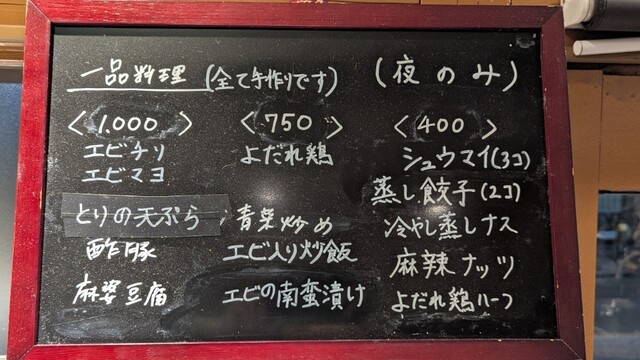 一品料理 (全て手作りです) (夜のみ)
<1,000>
エビチリ
エビマヨ
とりの天ぷら
酢豚
麻婆豆腐
<750>
よだれ鶏
青菜炒め
エビ入り炒飯
エビの南蛮漬け
<400>
シュウマイ(3コ)
蒸し餃子(2コ)
冷やし蒸しナス
麻辣ナッツ
よだれ鶏ハーフ